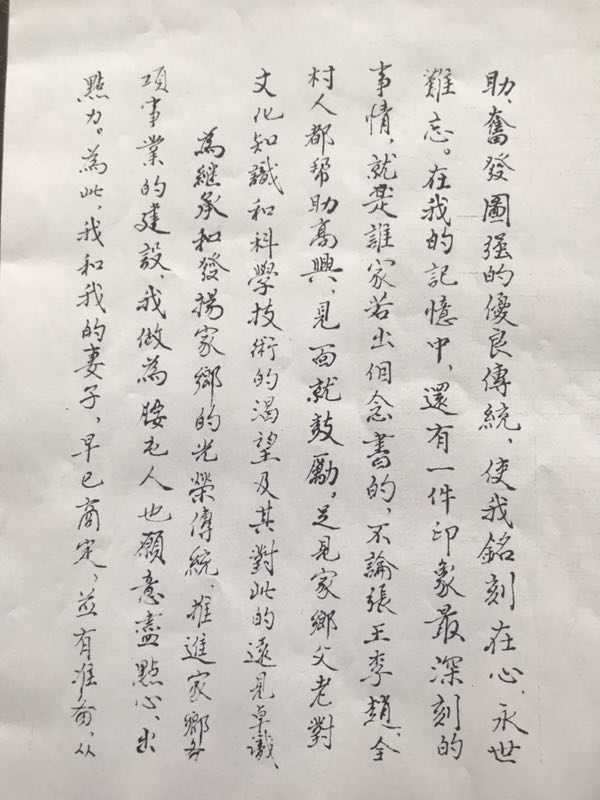 助、奮發圖强的優良傳統，使我銘刻在心，永世
難忘。在我的記憶中，還有一件印象最深刻的
事情，就是誰家若出個念書的，不論張王李趙，全
村人都幫助高興，見面就鼓勵，足見家鄉父老對
文化知識和科學技術的渴望及其對此的遠見卓識。
為繼承和發揚家鄉的光榮傳統，推進家鄉各
項事業的建設，我做為胺屯人也願意盡點心，出
點力。為此，我和我的妻子，早已商定，並有准备，从